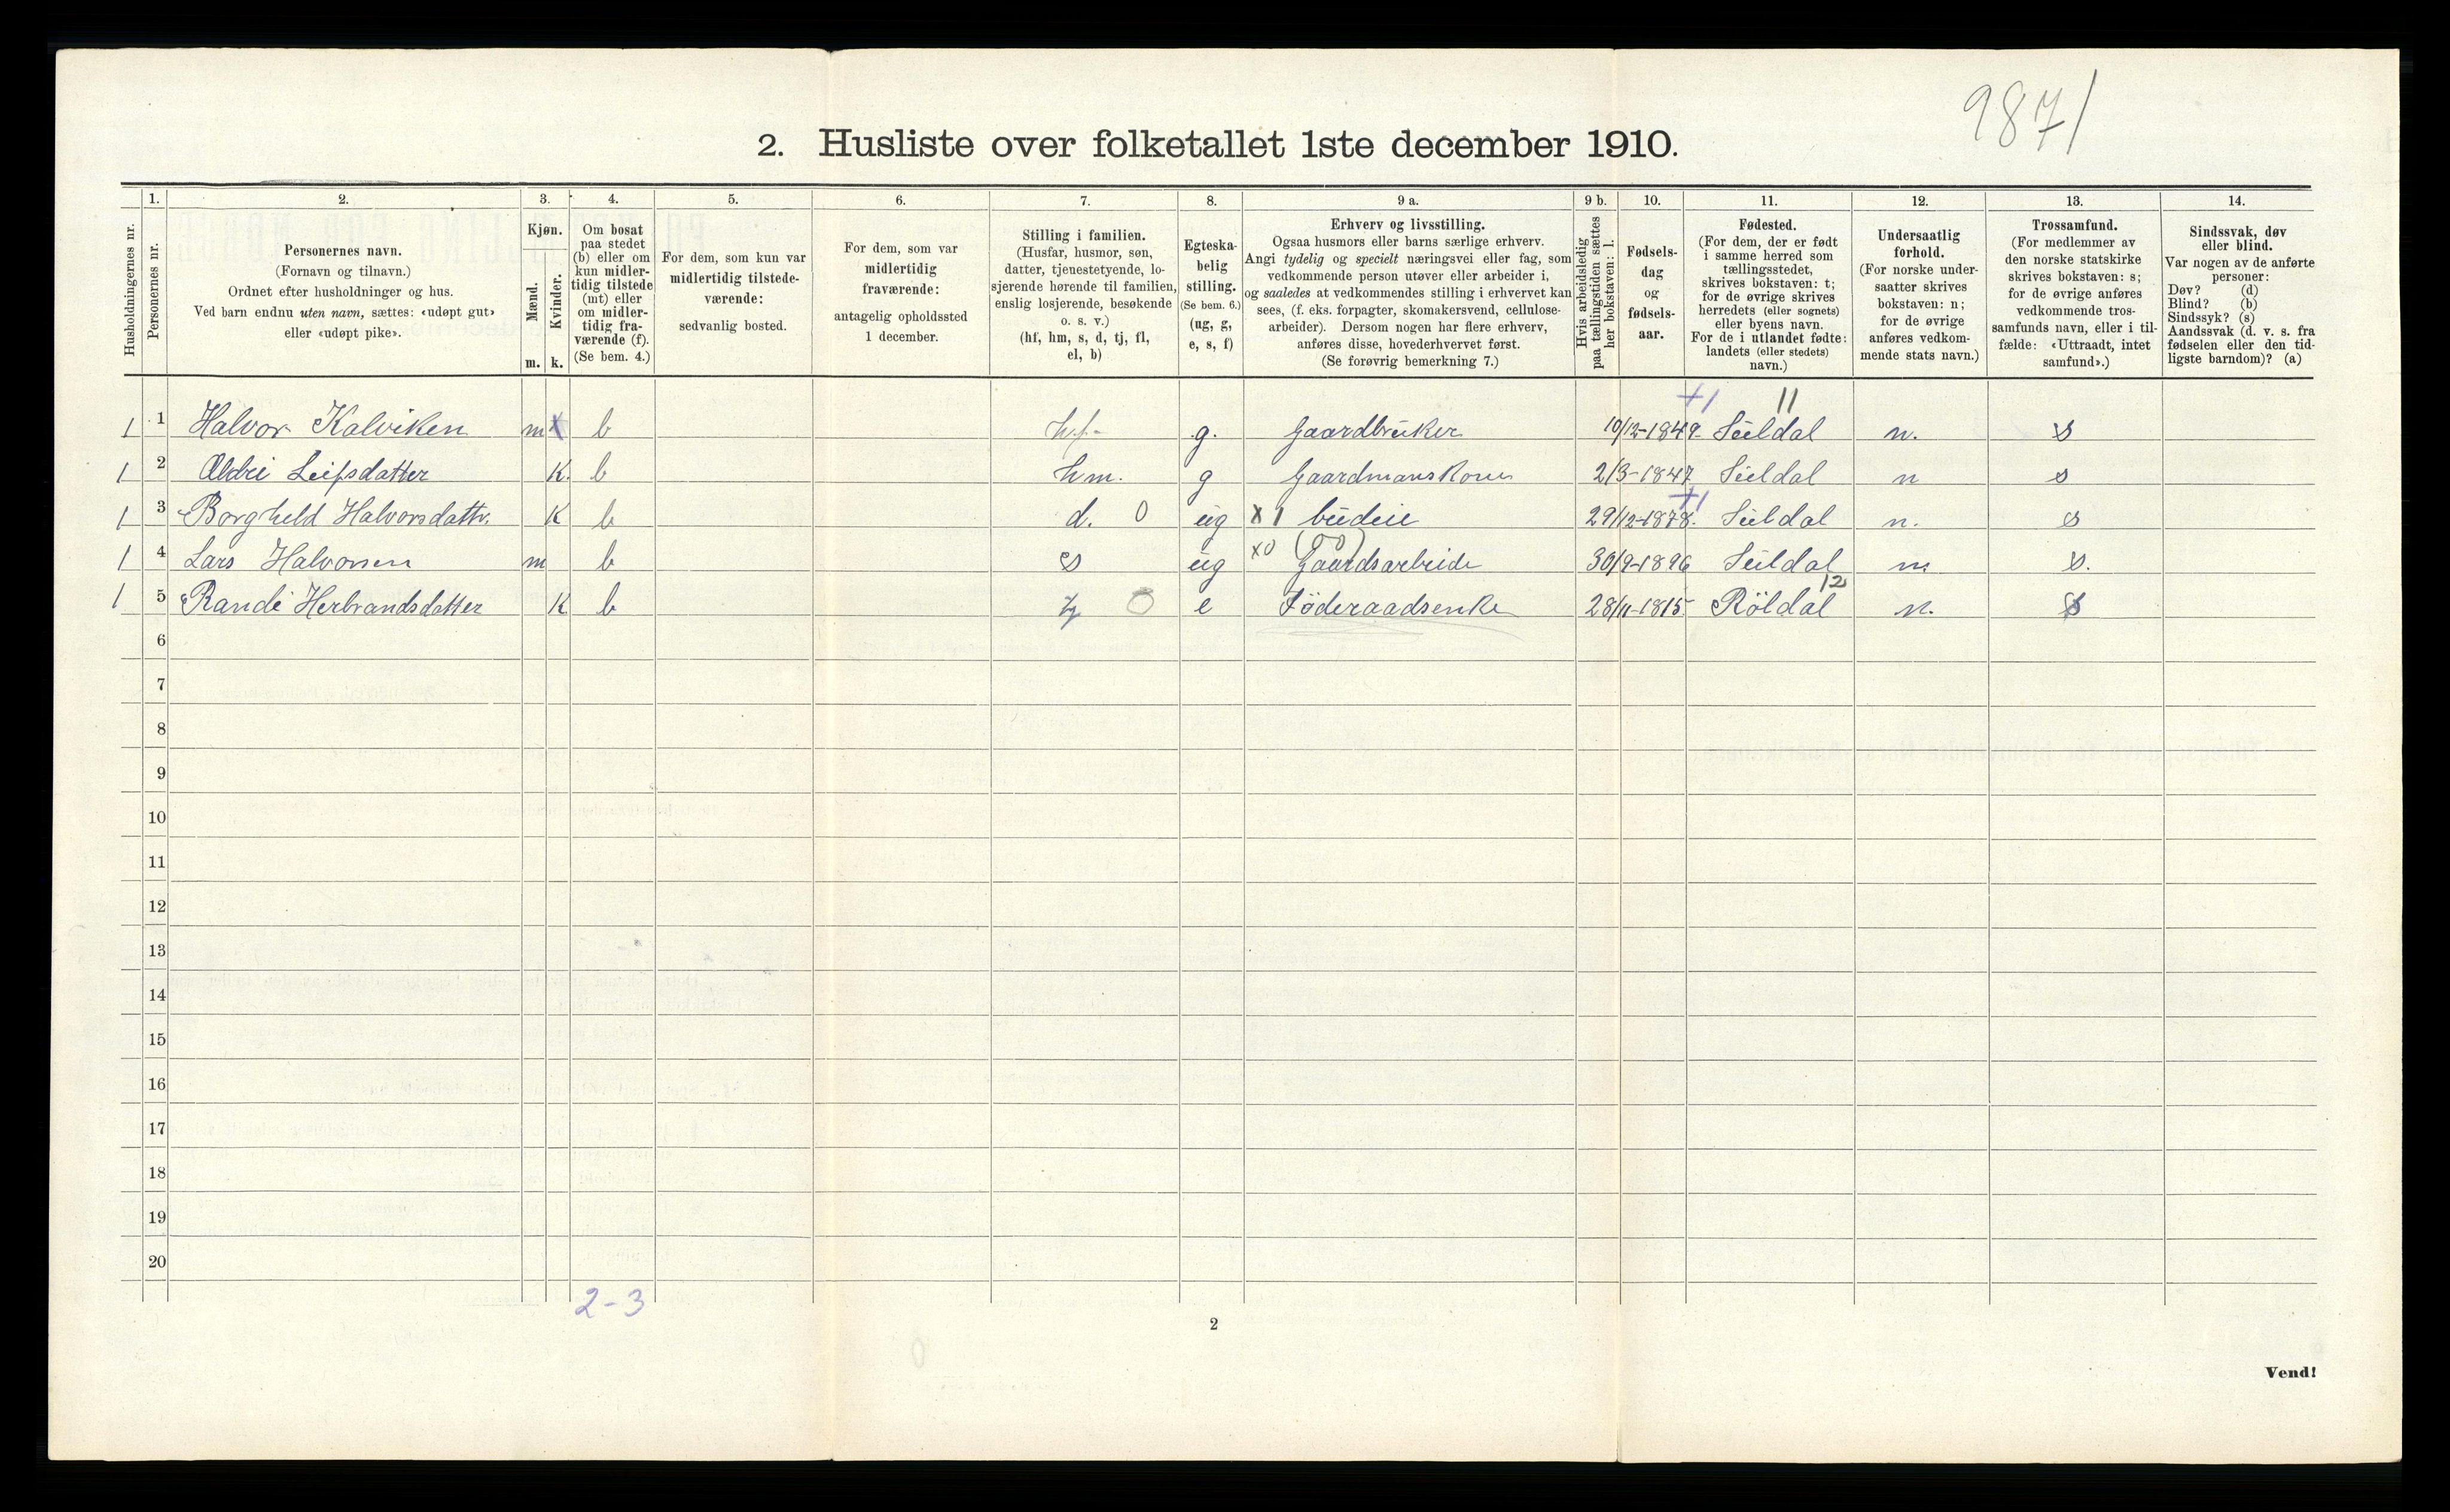 9871
2. Husliste over folketallet 1ste december 1910.
Husholdningernes nr.
1. Personernes nr.
2. Personernes navn. (Fornavn og tilnavn.) Ordnet efter husholdninger og hus. Ved barn endnu uten navn, sættes: «udøpt gut» eller «udøpt pike».
3. Kjøn. Mænd. m. Kvinder. k.
4. Om bosat paa stedet (b) eller om kun midlertidig tilstede (mt) eller om midlertidig fraværende (f). (Se bem. 4.)
5. For dem, som kun var midlertidig tilstedeværende: sedvanlig bosted.
6. For dem, som var midlertidig fraværende: antagelig opholdssted 1 december.
7. Stilling i familien. (Husfar, husmor, søn, datter, tjenestetyende, losjerende hørende til familien, enslig losjerende, besøkende o. s. v.) (hf, hm, s, d, tj, fl, el, b)
8. Egteskabelig stilling. (Se bem. 6.) (ug, g, e, s, f)
9 a. Erhverv og livsstilling. Ogsaa husmors eller barns særlige erhverv. Angi tydelig og specielt næringsvei eller fag, som vedkommende person utøver eller arbeider i, og saaledes at vedkommendes stilling i erhvervet kan sees, (f. eks. forpagter, skomakersvend, cellulosearbeider). Dersom nogen har flere erhverv, anføres disse, hovederhvervet først. (Se forøvrig bemerkning 7.)
9 b. Hvis arbeidsledig paa tællingstiden sættes her bokstaven: l.
10. Fødselsdag og fødselsaar.
11. Fødested. (For dem, der er født i samme herred som tællingsstedet, skrives bokstaven: t; for de øvrige skrives herredets (eller sognets) eller byens navn. For de i utlandet fødte: landets (eller stedets) navn.)
12. Undersaatlig forhold. (For norske undersaatter skrives bokstaven: n; for de øvrige anføres vedkommende stats navn.)
13. Trossamfund. (For medlemmer av den norske statskirke skrives bokstaven: s; for de øvrige anføres vedkommende trossamfunds navn, eller i tilfælde: «Uttraadt, intet samfund».)
14. Sindssvak, døv eller blind. Var nogen av de anførte personer: Døv? (d) Blind? (b) Sindssyk? (s) Aandssvak (d. v. s. fra fødselen eller den tidligste barndom)? (a)
+1 11
1 1 Halvor Kalviken m x b hf. g. Gaardbrüker 10/12-1849. Süldal n. s
1 2 Ældri Leifsdatter K. b hm. g Gaardmanskone 2/3-1847 Süldal n s
+1
1 3 Borghild Halvorsdattr. K b d. 0 üg x 1 büdeie 29/12-1878. Süldal n. s
(00)
1 4 Lars Halvorsen m b s üg x0 Gaardsarbeide 30/9-1896 Süldal n. s.
12
1 5 Randi Herbrandsdatter K b 0 e Föderaadsenke 28/11-1815 Röldal n. s
6
7
8
9
10
11
12
13
14
15
16
17
18
19
20
2-3
2
Vend!